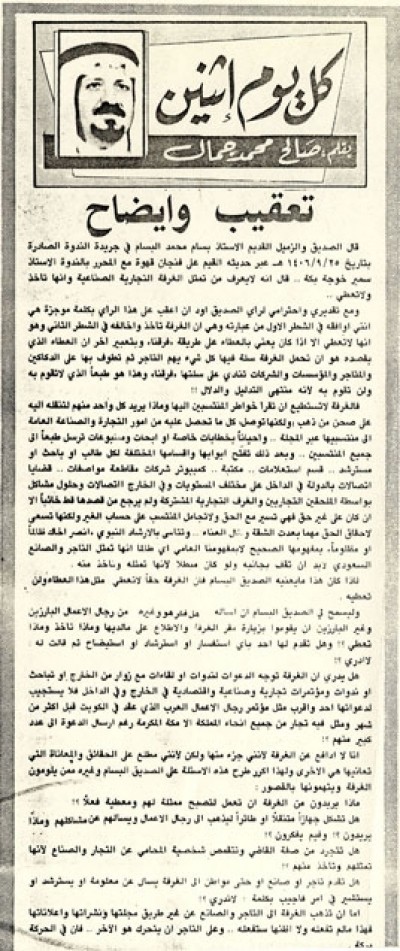 كل يوم إثنين
بقلم: صالح محمد جمال
تعقيب وايضاح
قال الصديق والزميل القديم الاستاذ بسام محمد البسام في جريدة الندوة الصادرة
بتاريخ ١٤٠٦/٩/٢٥ هـ عبر حديثه القيم على فنجان قهوة مع المحرر بالندوة الاستاذ
سمير خوجة بكة .. قال انه لايعرف من تمثل الغرفة التجارية الصناعية وانها تأخذ
ولاتعطي ..
ومع تقديري واحترامي لرأي الصديق اود ان اعقب على هذا الرأي بكلمة موجزة هي
انني اوافقه في الشطر الاول من عبارته وهي ان الغرفة تأخذ واخالفه في الشطر الثاني وهو
انها لاتعطي الا اذا كان يعني بالعطاء على طريقة ،فرقنا، وبتعبير اخر ان العطاء الذي
يقصده هو ان تحمل الغرفة سلة فيها كل شيء يهم التاجر ثم تطوف بها على الدكاكين
والمتاجر والمؤسسات والشركات تنادي على سلتها ،فرقنا، وهذا هو طبعاً الذي لاتقوم به
ولن تقوم به لأنه منتهى التدليل والدلال !!
فالغرفة لاتستطيع ان تقرأ خواطر المنتسبين اليها وماذا يريد كل واحد منهم لتنقله اليه
على صحن من ذهب ،ولكنها توصل، كل ما تحصل عليه من امور التجارة والصناعة العامة
الى منتسبيها عبر المجلة .. واحياناً بخطابات خاصة او ابحاث ومطبوعات ترسل طبعاً الى
جميع المنتسبين .. وبعد ذلك تفتح ابوابها واقسامها المختلفة لكل طالب او باحث او
مسترشد .. قسم استعلامات .. مكتبة .. كمبيوتر شركات مقاطعة مواصفات .. قضايا
اتصالات بالدولة في الداخل على مختلف المستويات و في الخارج ااتصالات وحلول مشاكل
بواسطة الملحقين التجاريين والغرف التجارية المشتركة ولم يرجع من قصدها قط خائباً الا
ان كان على غير حق فهي تسير مع الحق ولاتجامل المنتسب على حساب الغير ولكنها تسعى
لاحقاق الحق مهما بعدت الشقة و العناء .. وتتأسى بالارشاد النبوي ،انصر اخاك ظالماً
او مظلوماً، بمفهومها الصحيح لابمفهومنا العامي اي طالما انها تمثل التاجر والصانع
السعودي لابد ان تقف بجانبه ولو كان مبطلا لأنها تمثله وتأخذ منه .
فاذا كان هذا مايعنيه الصديق البسام فان الغرفة حقاً لاتعطي مثل هذا العطاء ولن
تعطيه .
وليسمح لي الصديق البسام ان اساله هل فكر هو وغيره من رجال الاعمال البارزين
وغير البارزين ان يقوموا بزيارة مقر الغرفة والاطلاع على مالديها وماذا تأخذ وماذا
تعطي ؟! وهل تقدم لها احد بأي استفسار او استرشاد او استيضاح ثم قالت له :
لاادري ؟!
هل يدري ان الغرفة توجه الدعوات لندوات او لقاءات مع زوار من الخارج او تباحث
او ندوات ومؤتمرات تجارية وصناعية واقتصادية في الخارج وفي الداخل فلا يستجيب
لدعواتها احد واقرب مثل مؤتمر رجال الاعمال العرب الذي عقد في الكويت قبل اكثر من
شهر ومثل فيه تجار من جميع انحاء المملكة الا مكة المكرمة رغم ارسال الدعوة الى عدد
كبير منهم ؟!
انا لا ادافع عن الغرفة لأنني جزء منها ولكن لأنني مطلع على الحقائق والمعاناة التي
تعانيها هي الاخرى ولهذا اكرر طرح هذه الاسئلة على الصديق البسام وغيره ممن يلومون
الغرفة ويتهمونها بالقصور :
ماذا يريدون من الغرفة ان تعمل لتصبح ممثلة لهم ومعطية فعلاً ؟!
هل تشكل جهازاً متنقلاً او طائراً ليذهب الى رجال الاعمال ويسالهم عن مشاكلهم وماذا
يريدون ؟! وفيم يفكرون ؟!
هل تتجرد من صفة القاضي وتتقمص شخصية المحامي عن التجار والصناع لأنها
تمثلهم وتأخذ منهم ؟!
هل تقدم تاجر او صانع او حتى مواطن الى الغرفة يسال عن معلومة او يسترشد او
يستشير في امر فاجيب بكلمة : لاندري ؟!
اما ان تذهب الغرفة الى التاجر والصانع عن غير طريق مجلتها ونشراتها واعلاناتها
فهذا مالم تفعله ولا اظنها ستفعله .. وعلى التاجر ان يتحرك هو الآخر .. فان في الحركة
بركة